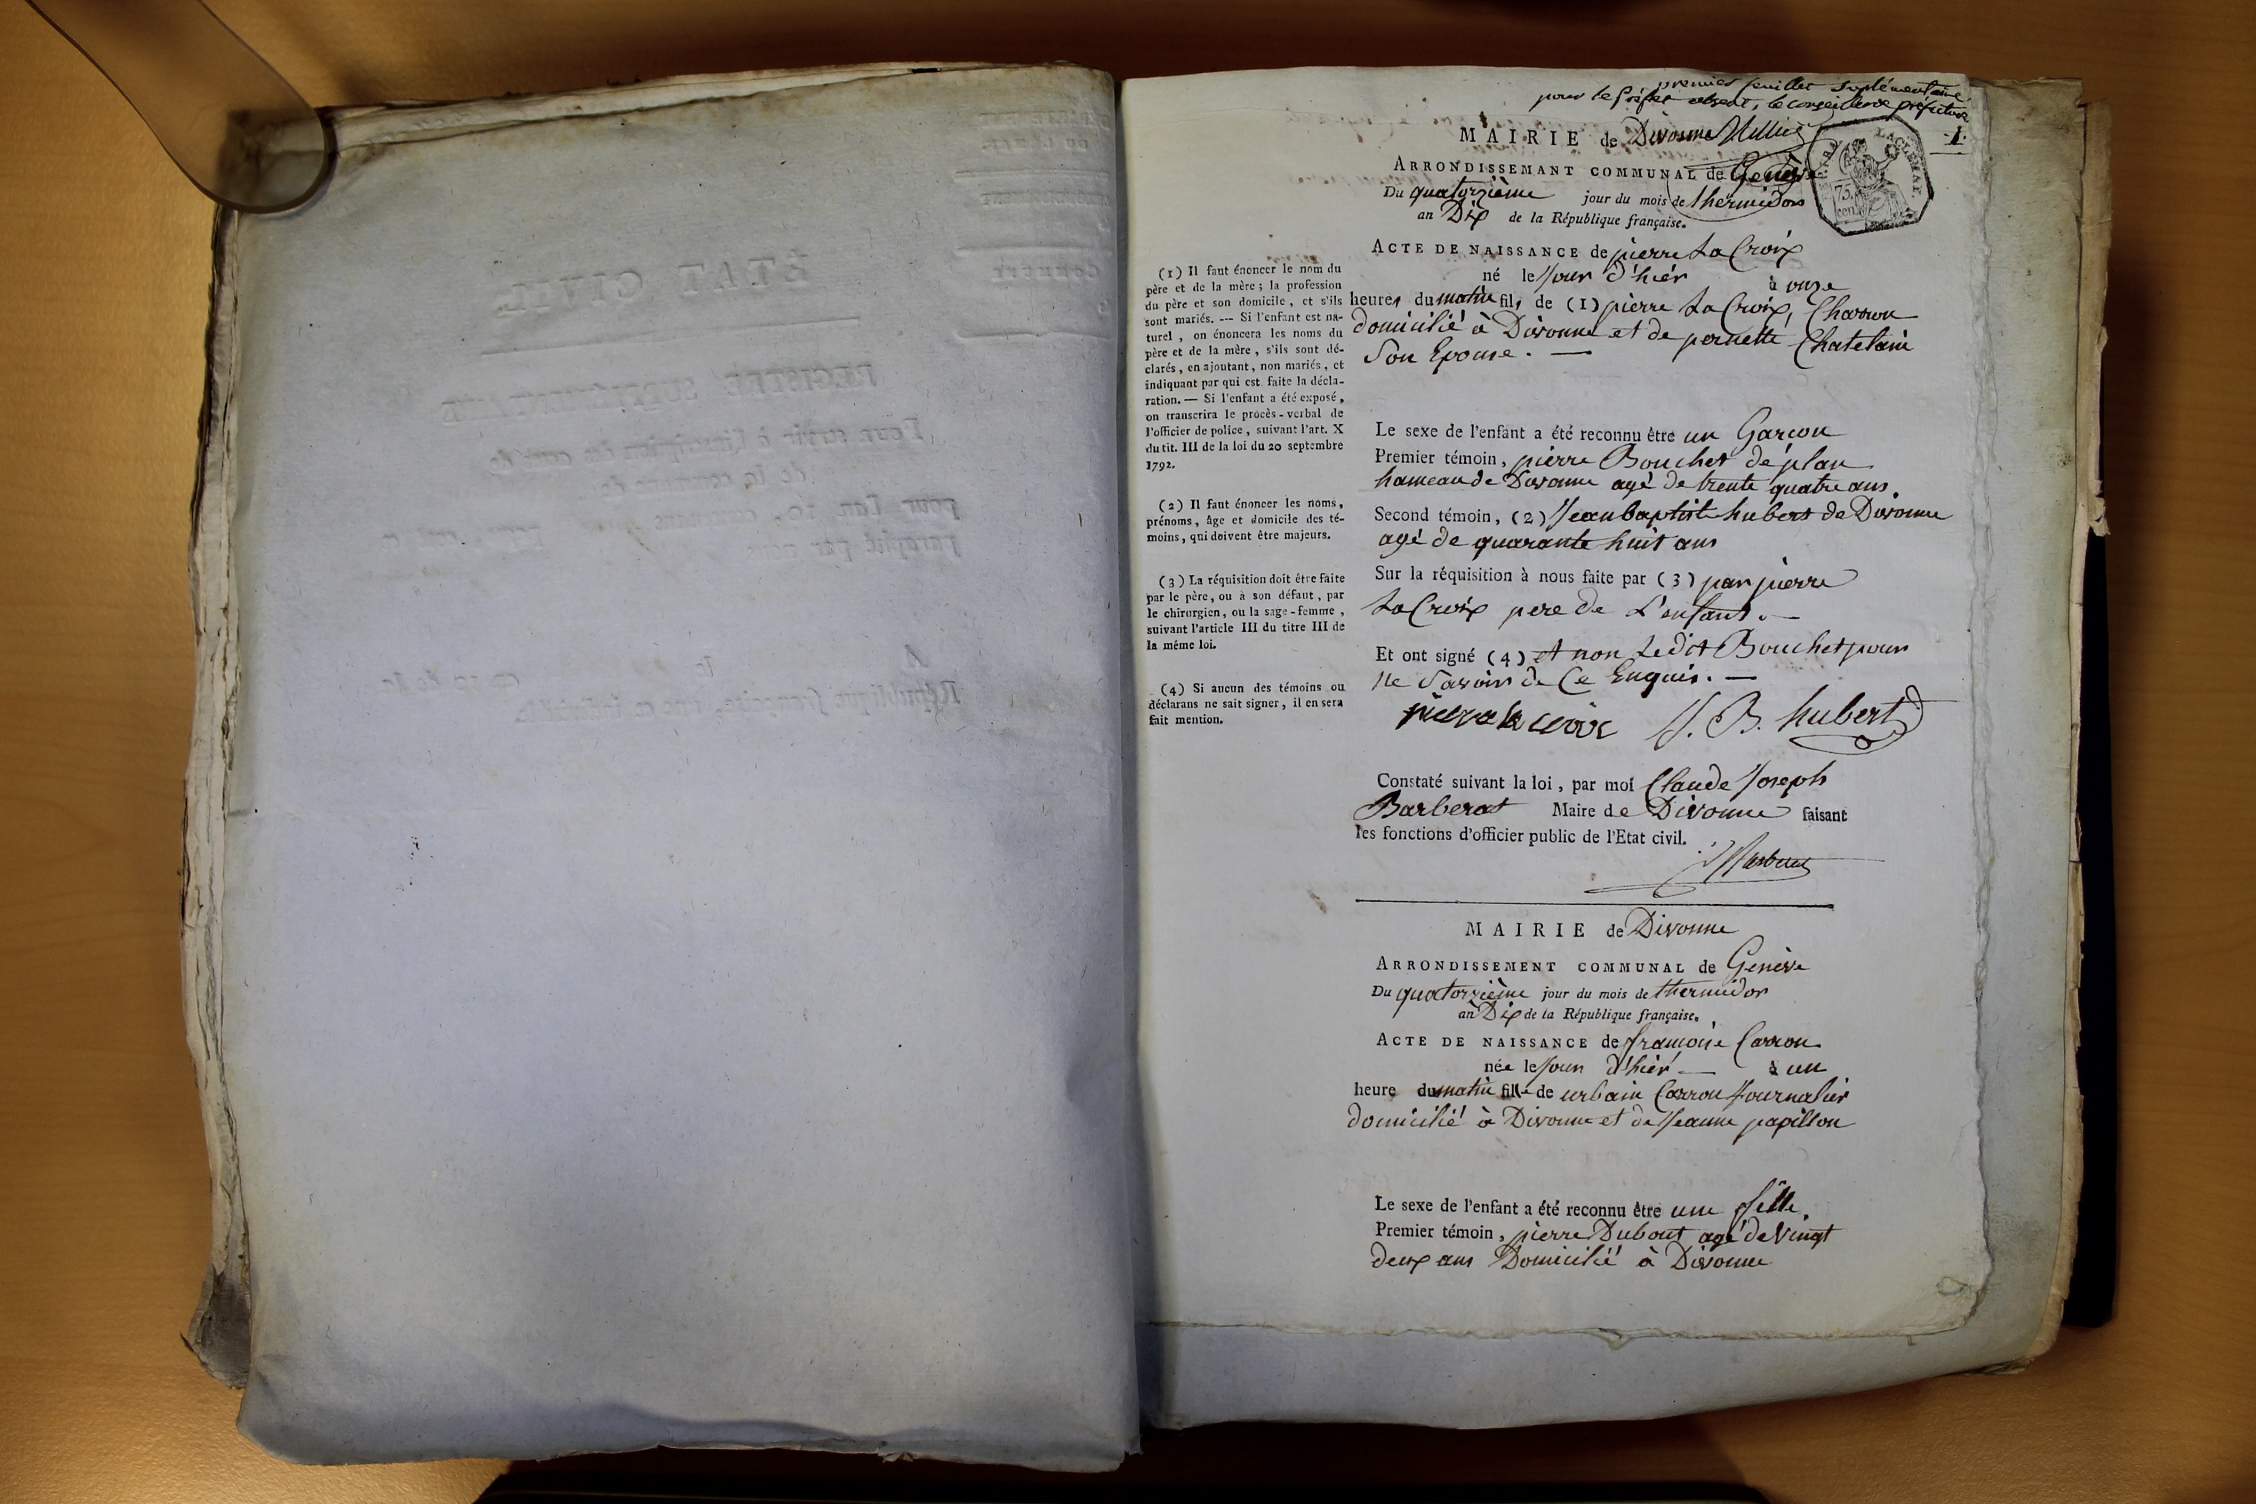 premier feuillet suplémentaire
pour le préfet absent, le conseiller de préfecture
1.
MAIRIE de Divonne
ARRONDISSEMANT COMMUNAL de Genève
75 cen
Du quatorzième jour du mois de thermidor
an Dix de la République française.
ACTE DE NAISSANCE de pierre La Croix
né le jour d'hiér à onze
heures du matin fils de (1) pierre La Croix, Charron
domicilié à Divonne et de pernette Chatelain
Son Epouse. —
Le sexe de l'enfant a été reconnu être un Garcon
Premier témoin, pierre Bouchet de plan
hameau de Divonne agé de trente quatre ans.
Second témoin, (2) Jean baptiste hubert de Divonne
agé de quarante huit ans
Sur la réquisition à nous faite par (3) par pierre
La Croix pere de L'enfant. —
Et ont signé (4) et non Ledit Bouchet pour
ne Savoir de Ce Enquis. —
J. B. hubert
Constaté suivant la loi, par moi Claude Joseph
Barberat Maire de Divonne faisant
les fonctions d'officier public de l'Etat civil.
(1) Il faut énoncer le nom du
père et de la mère; la profession
du père et son domicile, et s'ils
sont mariés. --- Si l'enfant est na-
turel, on énoncera les noms du
père et de la mère, s'ils sont dé-
clarés, en ajoutant, non mariés, et
indiquant par qui est faite la décla-
ration. — Si l'enfant a été exposé,
on transcrira le procès-verbal de
l'officier de police, suivant l'art. X
du tit. III de la loi du 20 septembre
1792.
(2) Il faut énoncer les noms,
prénoms, âge et domicile des té-
moins, qui doivent être majeurs.
(3) La réquisition doit être faite
par le père, ou à son défaut, par
le chirurgien, ou la sage-femme,
suivant l'article III du titre III de
la même loi.
(4) Si aucun des témoins ou
déclarans ne sait signer, il en sera
fait mention.
MAIRIE de Divonne
ARRONDISSEMENT COMMUNAL de Genève
Du quatorzième jour du mois de thermidor
an Dix de la République française.
ACTE DE NAISSANCE de francoise Carron
née le jour d'hiér — à un
heure du matin fille de urbain Carron Journalier
domicilié à Divonne et de Jeanne papillon
Le sexe de l'enfant a été reconnu être une fille.
Premier témoin, pierre Dubout agé de Vingt
deux ans Domicilié à Divonne